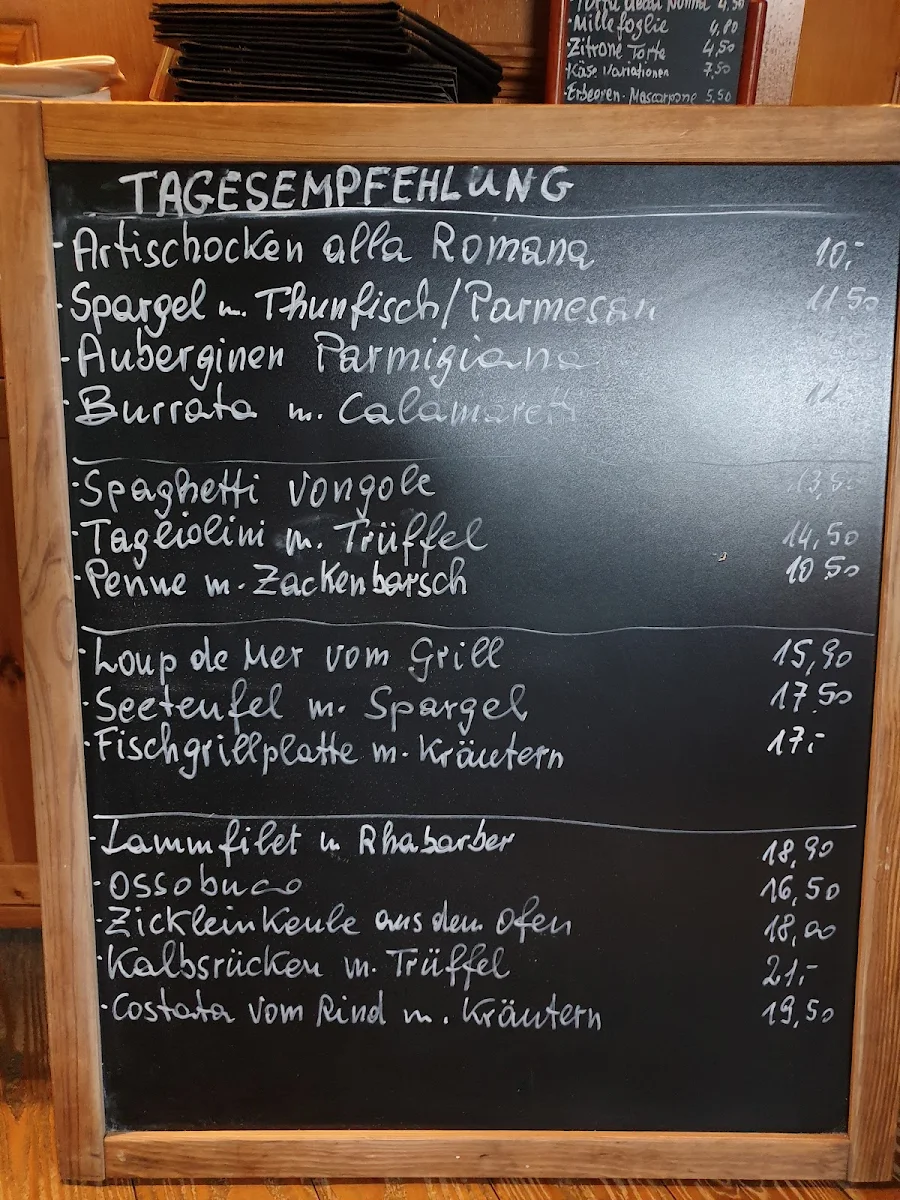 Torta della Nonna 4,50
·Millefoglie 4,80
·Zitrone Torte 4,50
·Käse Variationen 7,50
·Erbeeren-Mascarpone 5,50
TAGESEMPFEHLUNG
·Artischocken alla Romana 10,-
·Spargel m. Thunfisch/Parmesan 11,50
·Auberginen Parmigiana
·Burrata m. Calamaretti
·Spaghetti Vongole
·Tagliolini m. Trüffel 14,50
·Penne m. Zackenbarsch 10,50
·Loup de Mer vom Grill 15,90
·Seeteufel m. Spargel 17,50
·Fischgrillplatte m. Kräutern 17,-
·Lammfilet m Rhabarber 18,90
·Ossobuco 16,50
·Zickleinkeule aus dem Ofen 18,00
·Kalbsrücken m. Trüffel 21,-
·Costata vom Rind m. Kräutern 19,50